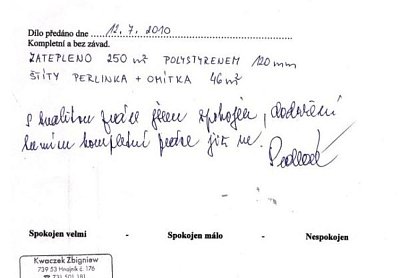 Dílo předáno dne 12. 7. 2010
Kompletní a bez závad.
ZATEPLENO 250 m² POLYSTYRENEM 120 mm
ŠTÍTY PERLINKA + OMÍTKA 46 m²
s kvalitou práce jsem spokojen, dodržení
termínu kompletní práce již ne.
Spokojen velmi - Spokojen málo - Nespokojen
Kwaczek Zbigniew
739 53 Hnojník č. 176
731 501 181